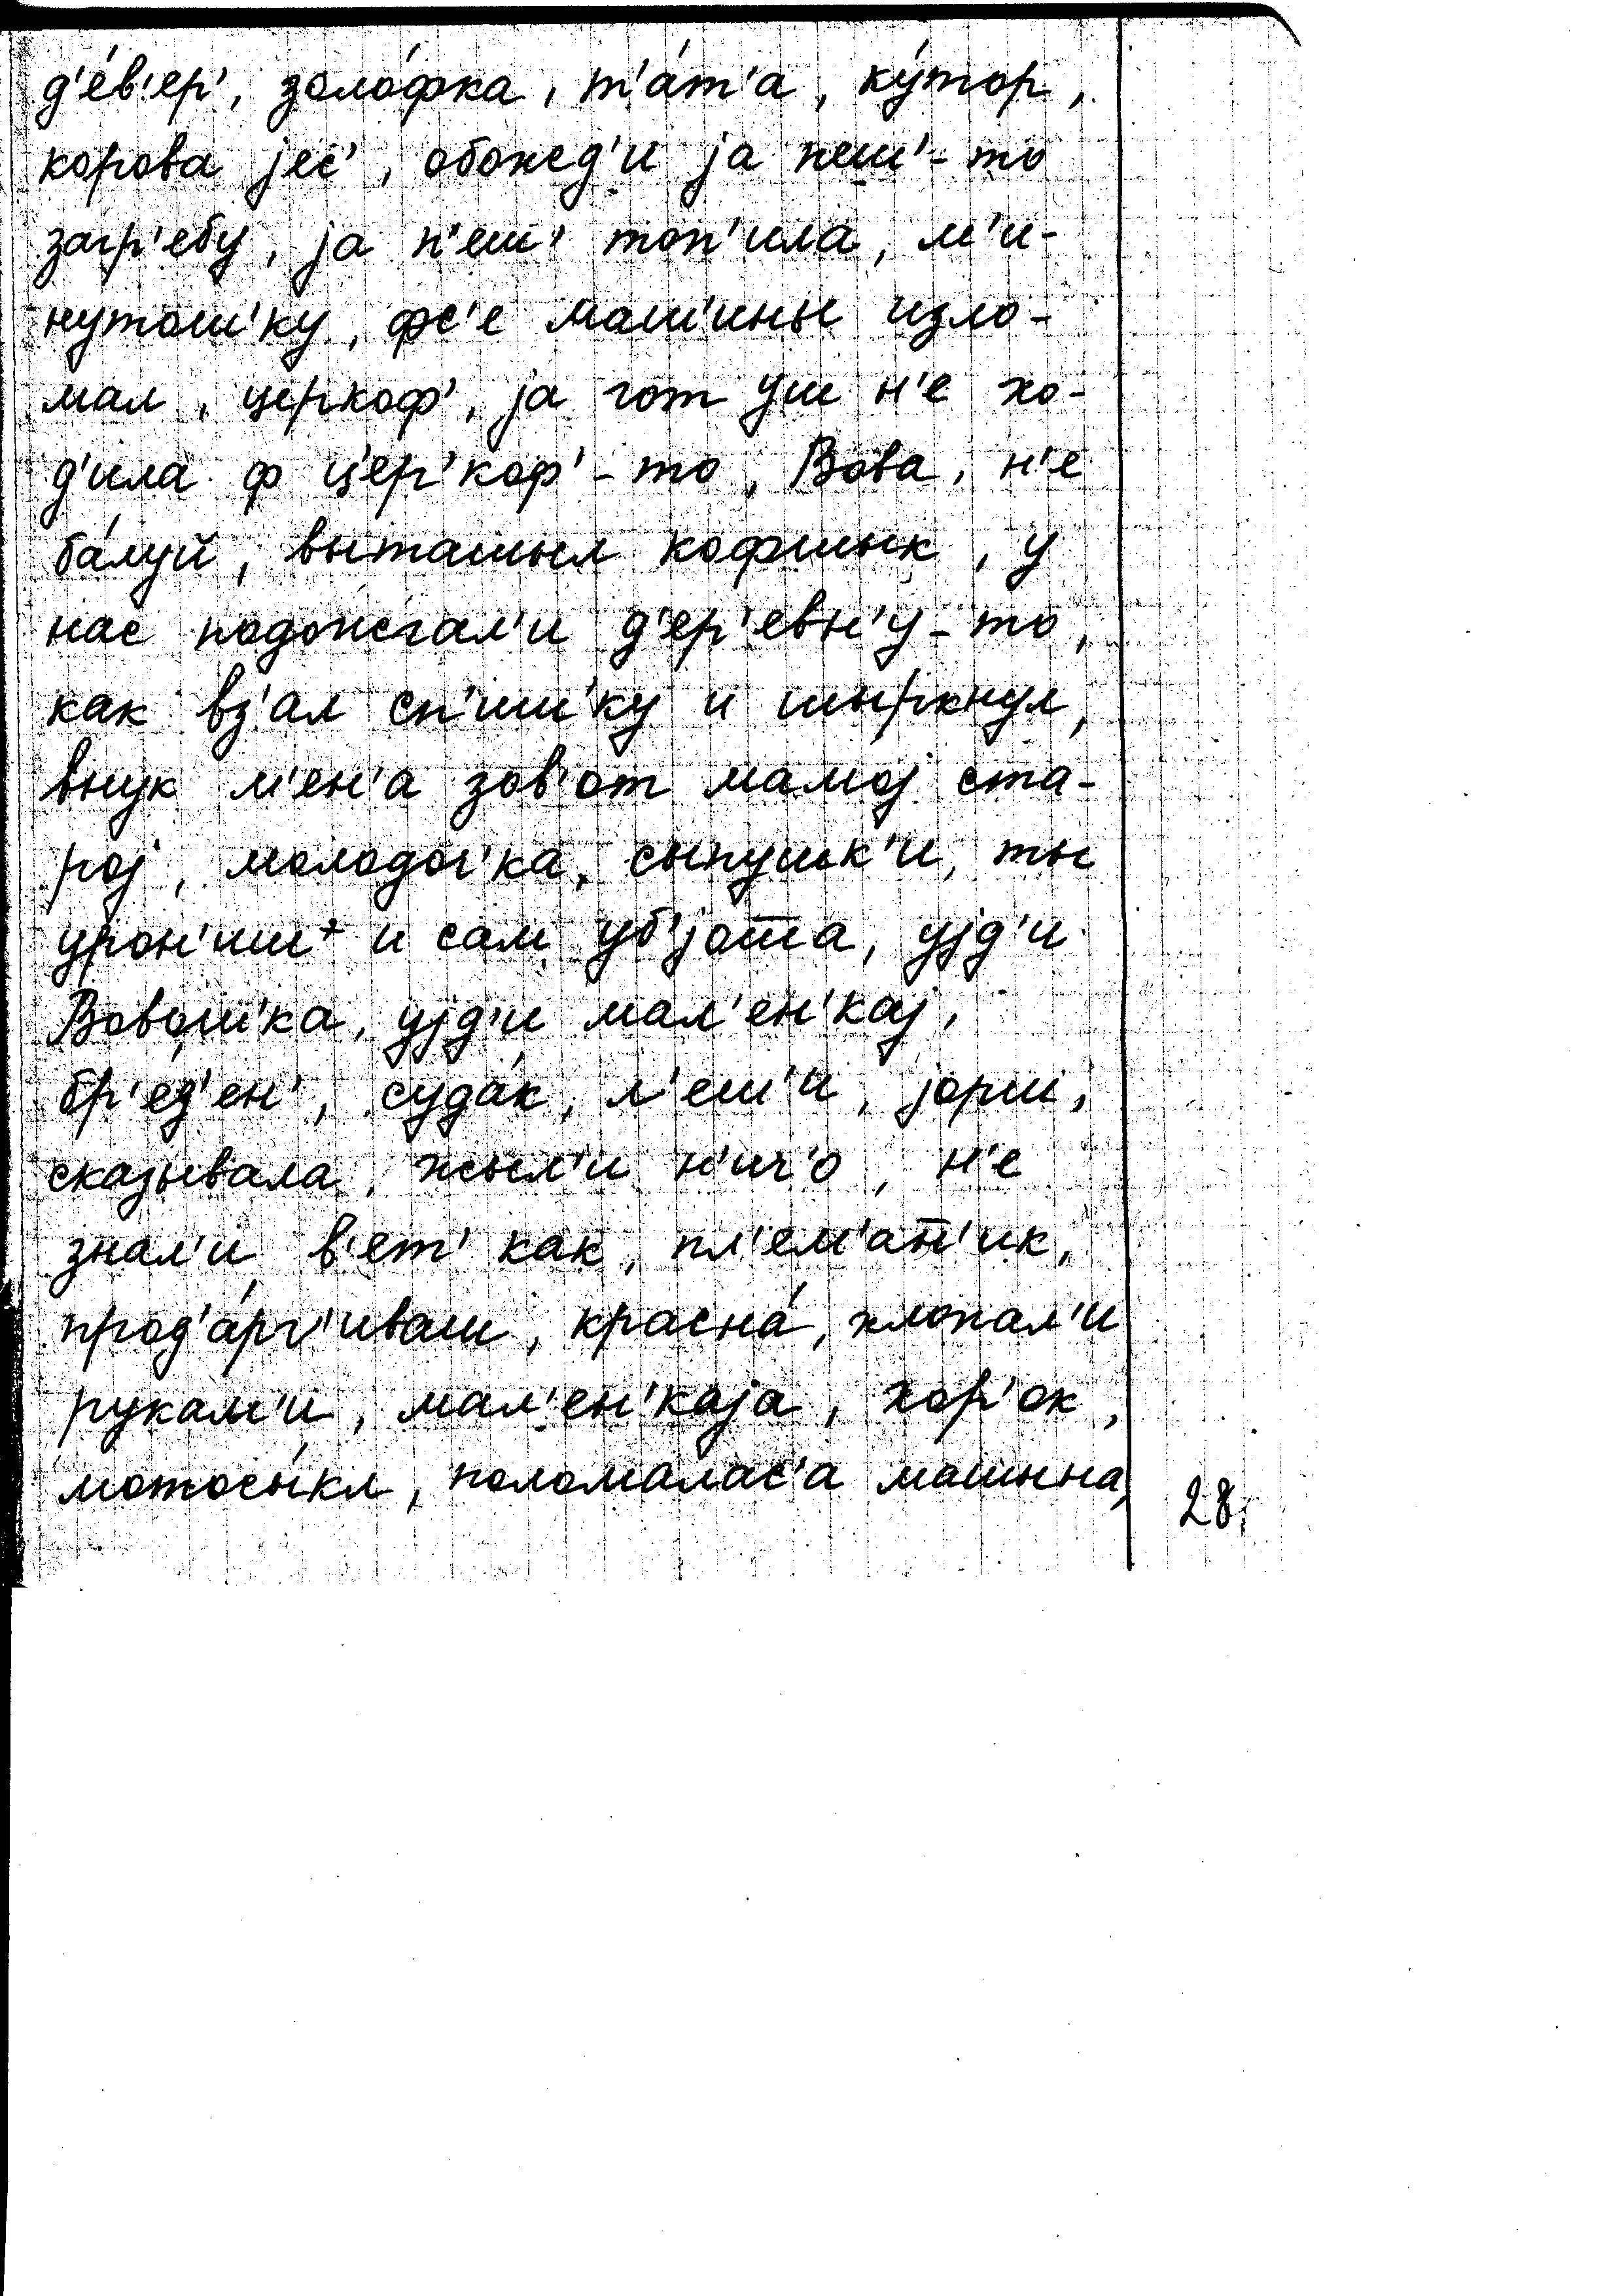 д'е́в'ер', золо́фка, т'а́т'а, ку́тор,
корова јес', обожд'и ја пеш'-то
загр'ебу, ја п'еш' топ'ила, м'и-
нутош'ку, фс'е маш'ины изло-
мал, церкоф', ја гот уш н'е хо-
д'ила ф ц'ер'коф'-то, Вова, н'е
ба́луй, выташыл кофшык, у
нас подожгал'и д'ер'евн'у-то,
как вз'ал сп'ищ'ку и шыркнул,
внук м'ен'а зов'от мамој ста-
рој, молодог'ка, сыпушк'и, ты
урон'иш' и сам уб'јот̅а, ујд'и
Вовош'ка, ујд'и мал'ен'кај,
бр'ед'ен', суда́к, л'еш'и, јорш,
сказывала, жыл'и н'ич'о, н'е
знал'и в'ет' как, пл'ем'ан̅'ик,
прод'а́рг'иваш, красна́, хлопал'и
рукам'и, мал'ен'каја, хор'ок,
мотосыкл, поломалас'а машына,
28,